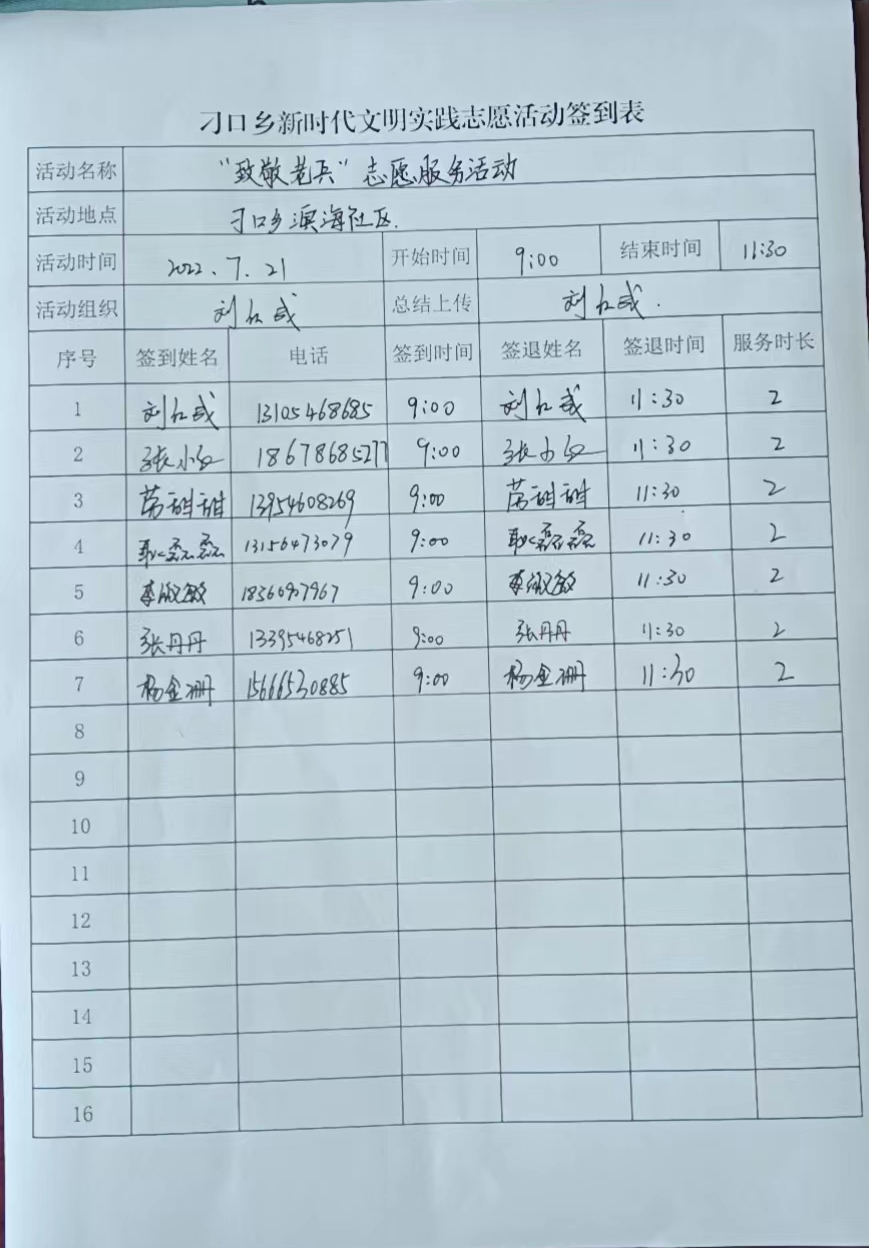 刁口乡新时代文明实践志愿活动签到表
活动名称 “致敬老兵”志愿服务活动
活动地点 刁口乡滨海社区.
活动时间 2022.7.21 开始时间 9:00 结束时间 11:30
活动组织 刘红成 总结上传 刘红成.
序号 签到姓名 电话 签到时间 签退姓名 签退时间 服务时长
1 刘红成 13105468685 9:00 刘红成 11:30 2
2 张小 18678685277 9:00 张小 11:30 2
3 甜甜 13954608269 9:00 甜甜 11:30 2
4 耿磊磊 13156473079 9:00 耿磊磊 11:30 2
5 李淑敏 9:00 李淑敏 11:30 2
6 张丹丹 13395468251 9:00 张丹丹 11:30 2
7 杨金珊 15666530885 9:00 杨金珊 11:30 2
8
9
10
11
12
13
14
15
16